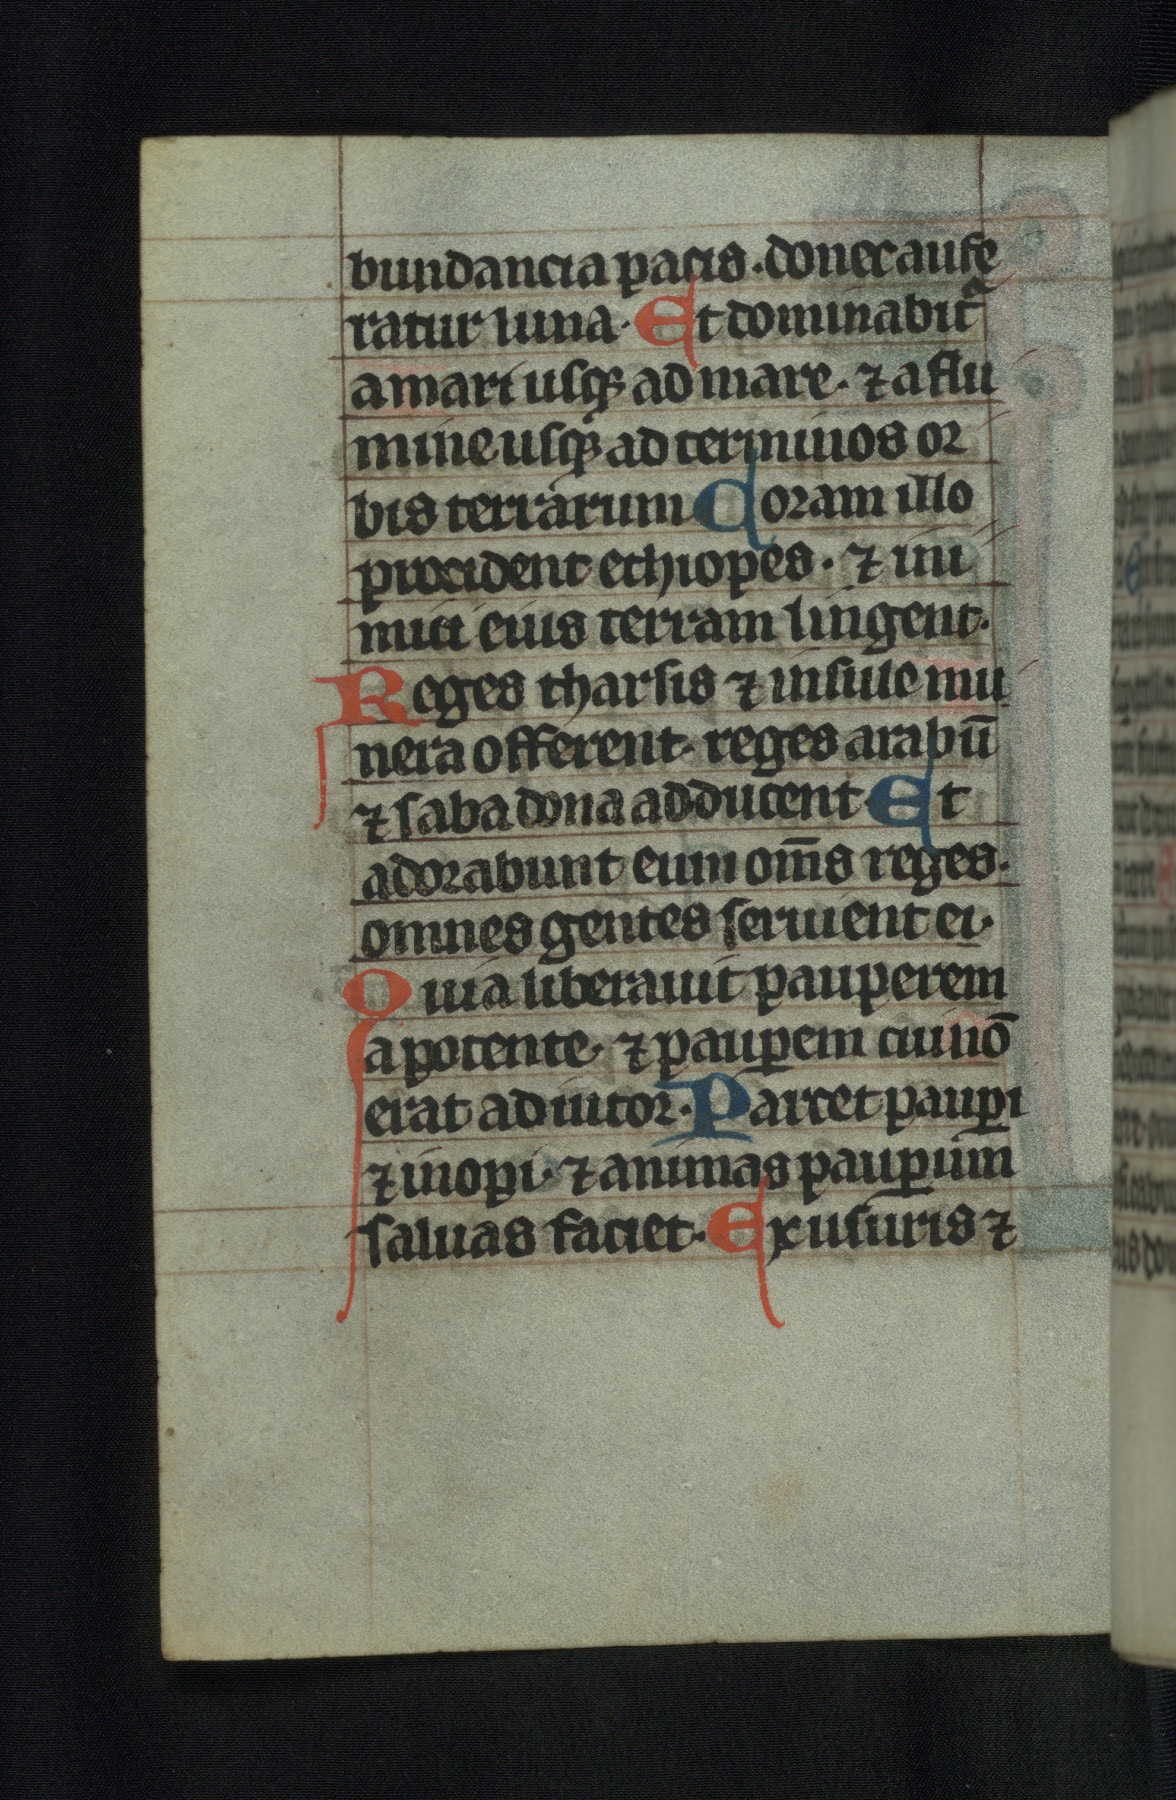 bundancia pacis. donec aufe
ratur luna. Et dominabit᷑
a mari usqꝫ ad mare. ⁊ a flu
mine usqꝫ ad terminos or
bis terrarum Coram illo
procident ethiopes. ⁊ ini
mici eius terram lingent.
Reges tharsis ⁊ insule mu
nera offerent. reges arabū
⁊ saba dona adducent Et
adorabunt eum om̄s reges.
omnes gentes seruient ei.
Quia liberauit pauperem
a potente. ⁊ pauꝑem cui nō
erat adiutor. Parcet pauꝑi
⁊ inopi. ⁊ animas pauꝑum
saluas faciet. Ex usuris ⁊